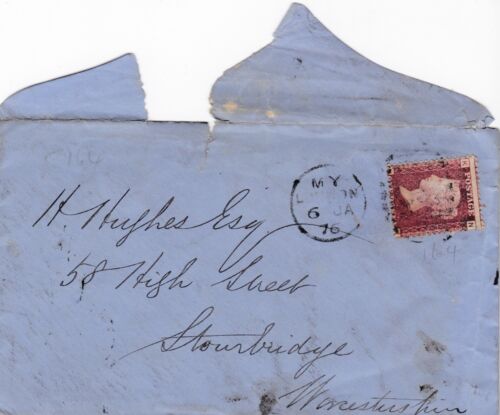 C164
MY
LONDON
6 JA
76
H. Hughes Esq.
58 High Street
164
Stourbridge
Worcestershire